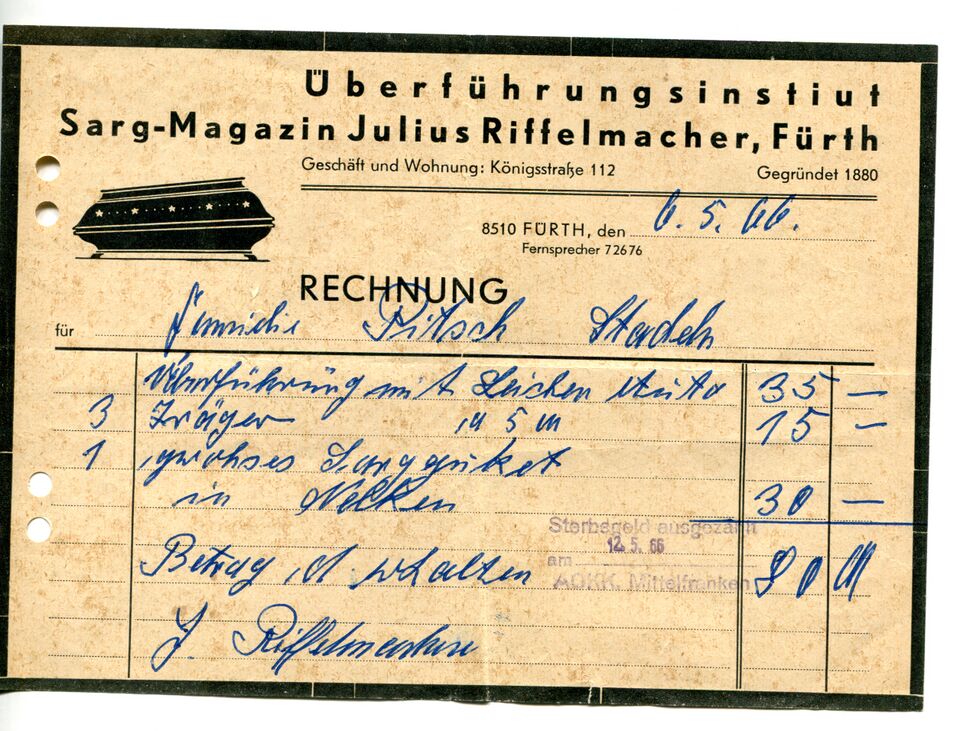 Überführungsinstiut
Sarg-Magazin Julius Riffelmacher, Fürth
Geschäft und Wohnung: Königsstraße 112 Gegründet 1880
8510 FÜRTH, den 6. 5. 66.
Fernsprecher 72676
RECHNUNG
für Familie Pitsch Stadeln
Überführung mit Leichen Auto 35 —
3 Träger a 5 M 15 —
1 Sargbuket
in Nelken 30 —
Sterbegeld ausgezahlt
12. 5. 66
am
Betrag d. erhalten 80 M
AOKK. Mittelfranken
J. Riffelmacher